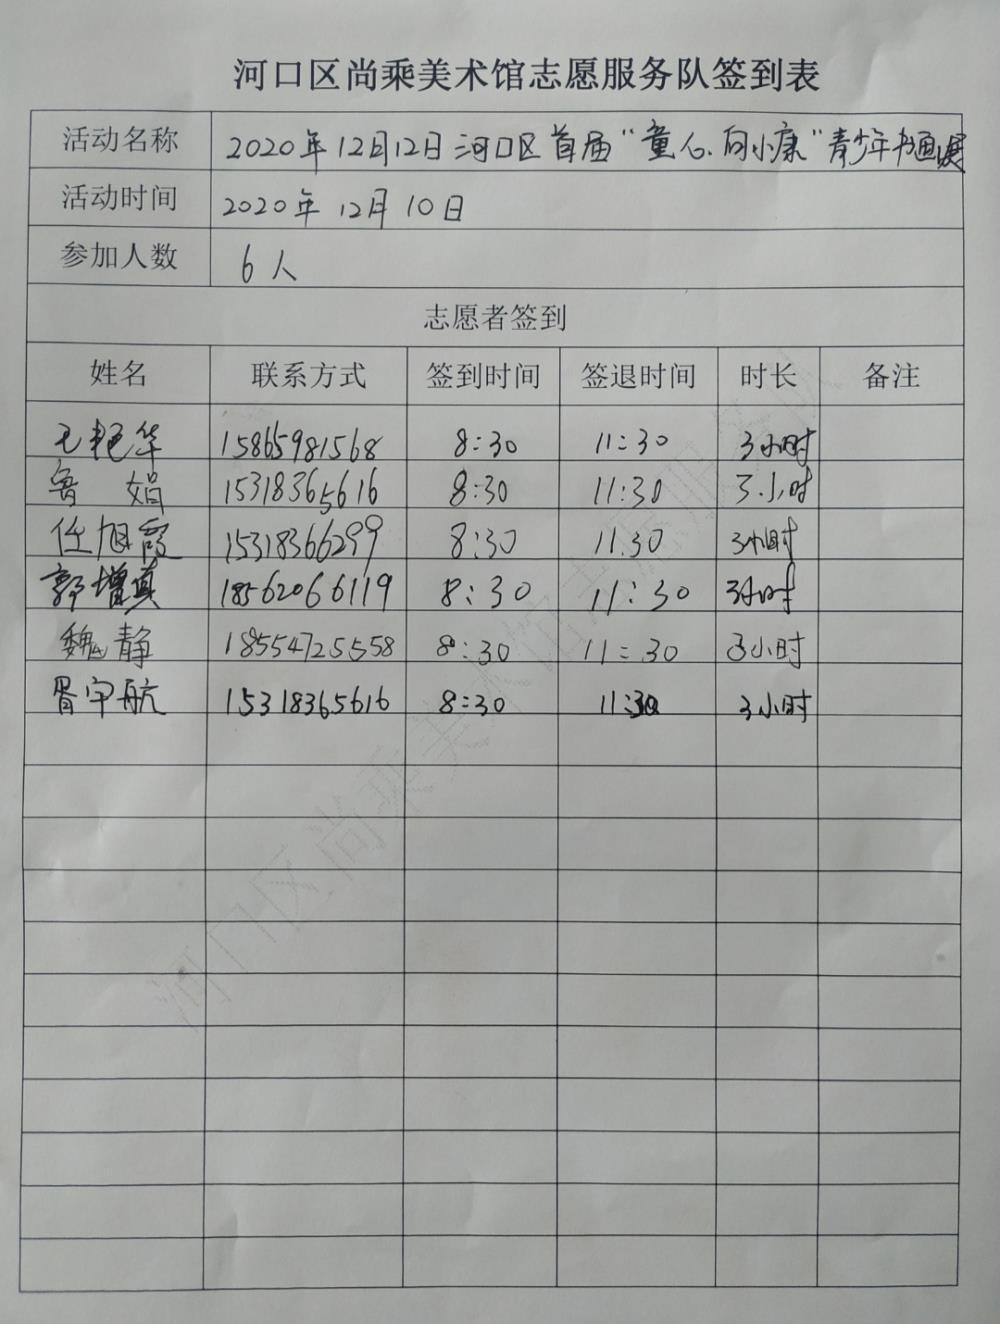 河口区尚乘美术馆志愿服务队签到表
活动名称 2020年12月12日河口区首届“童心向小康”青少年书画展
活动时间 2020年12月10日
参加人数 6人
志愿者签到
姓名 联系方式 签到时间 签退时间 时长 备注
王艳华 15865981568 8:30 11:30 3小时
鲁娟 15318365616 8:30 11:30 3小时
任旭霞 15318366299 8:30 11:30 3小时
郭增真 18562066119 8:30 11:30 3小时
魏静 18554725558 8:30 11:30 3小时
胥宇航 15318365616 8:30 11:30 3小时
河口区尚乘美术馆志愿服务队